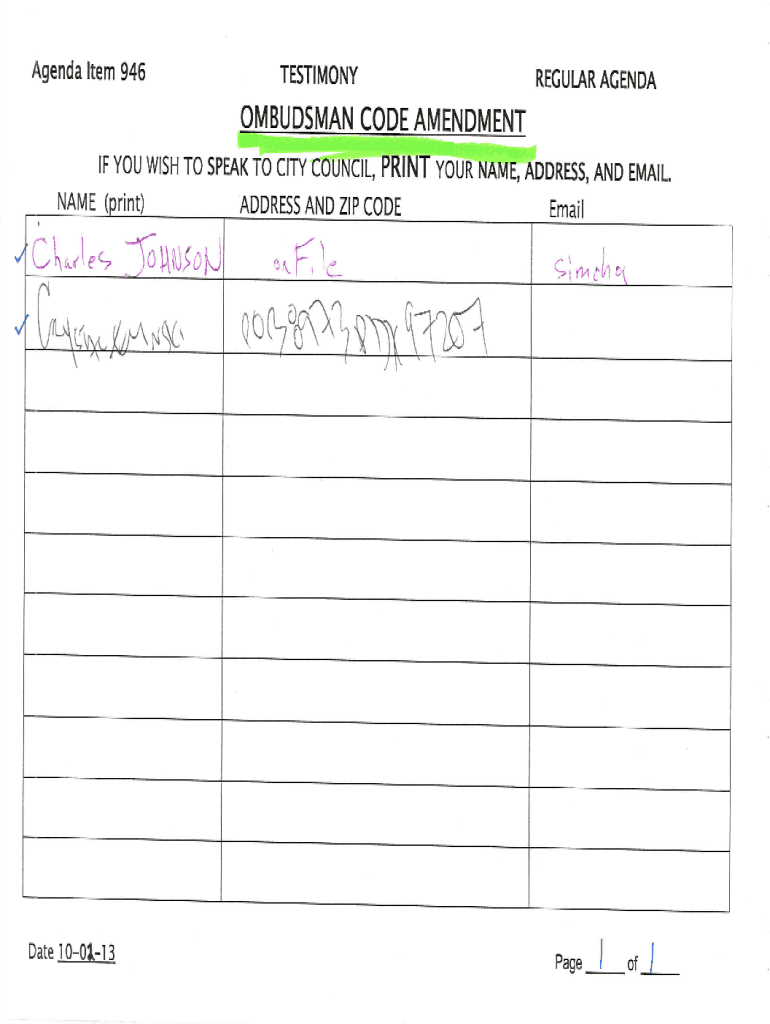 Agenda Item 946 TESTIMONY REGULAR AGENDA
OMBUDSMAN CODE AMENDMENT
IF YOU WISH TO SPEAK TO CITY COUNCIL, PRINT YOUR NAME, ADDRESS, AND EMAIL.
NAME (print) ADDRESS AND ZIP CODE Email
Charles JOHNSON on File simcha
97207
Date 10-02-13 Page 1 of 1